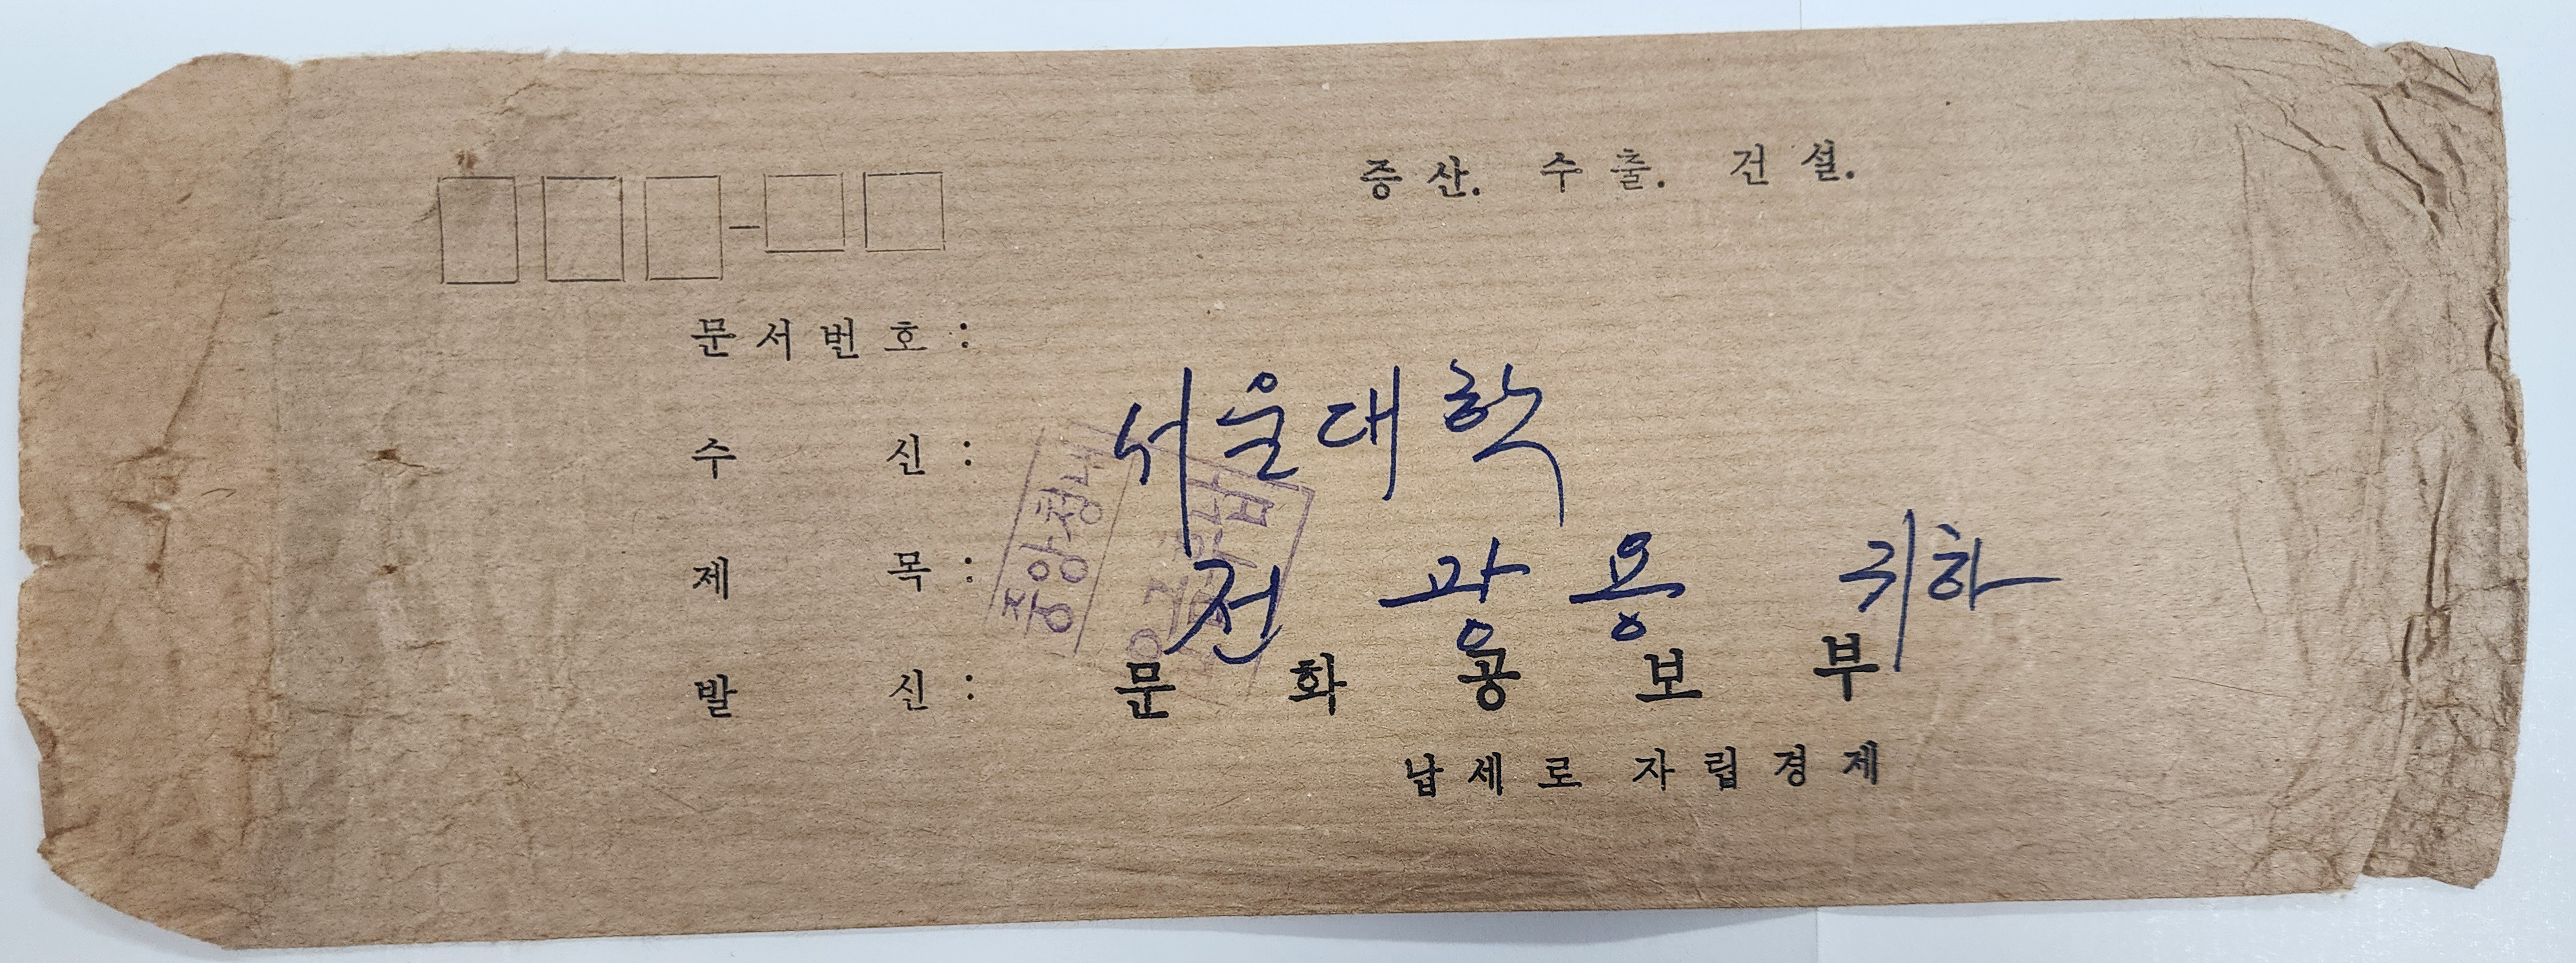 증산. 수출. 건설.
문서번호:
수 신: 서울대학
제 목: 전 광 용 귀하
발 신: 문 화 공 보 부
납세로 자립경제
중앙청내